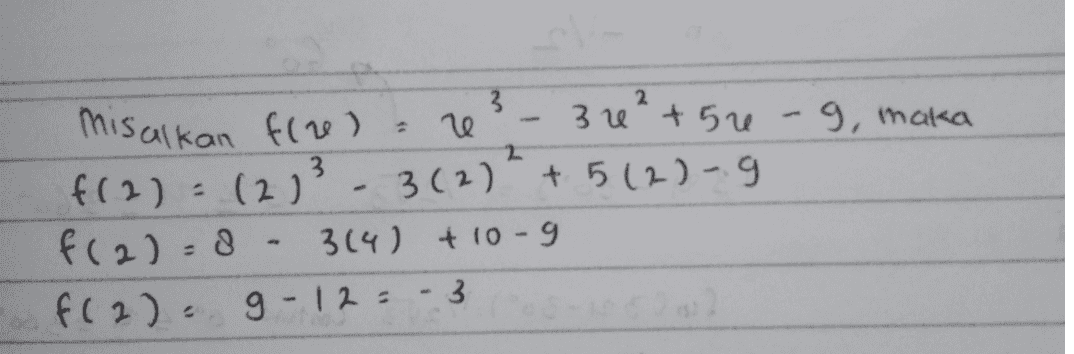 Misalkan f(x) = x³ - 3x² + 5x - 9, maka
f(2) = (2)³ - 3(2)² + 5(2) - 9
f(2) = 8 - 3(4) + 10 - 9
f(2) = 9 - 12 = -3